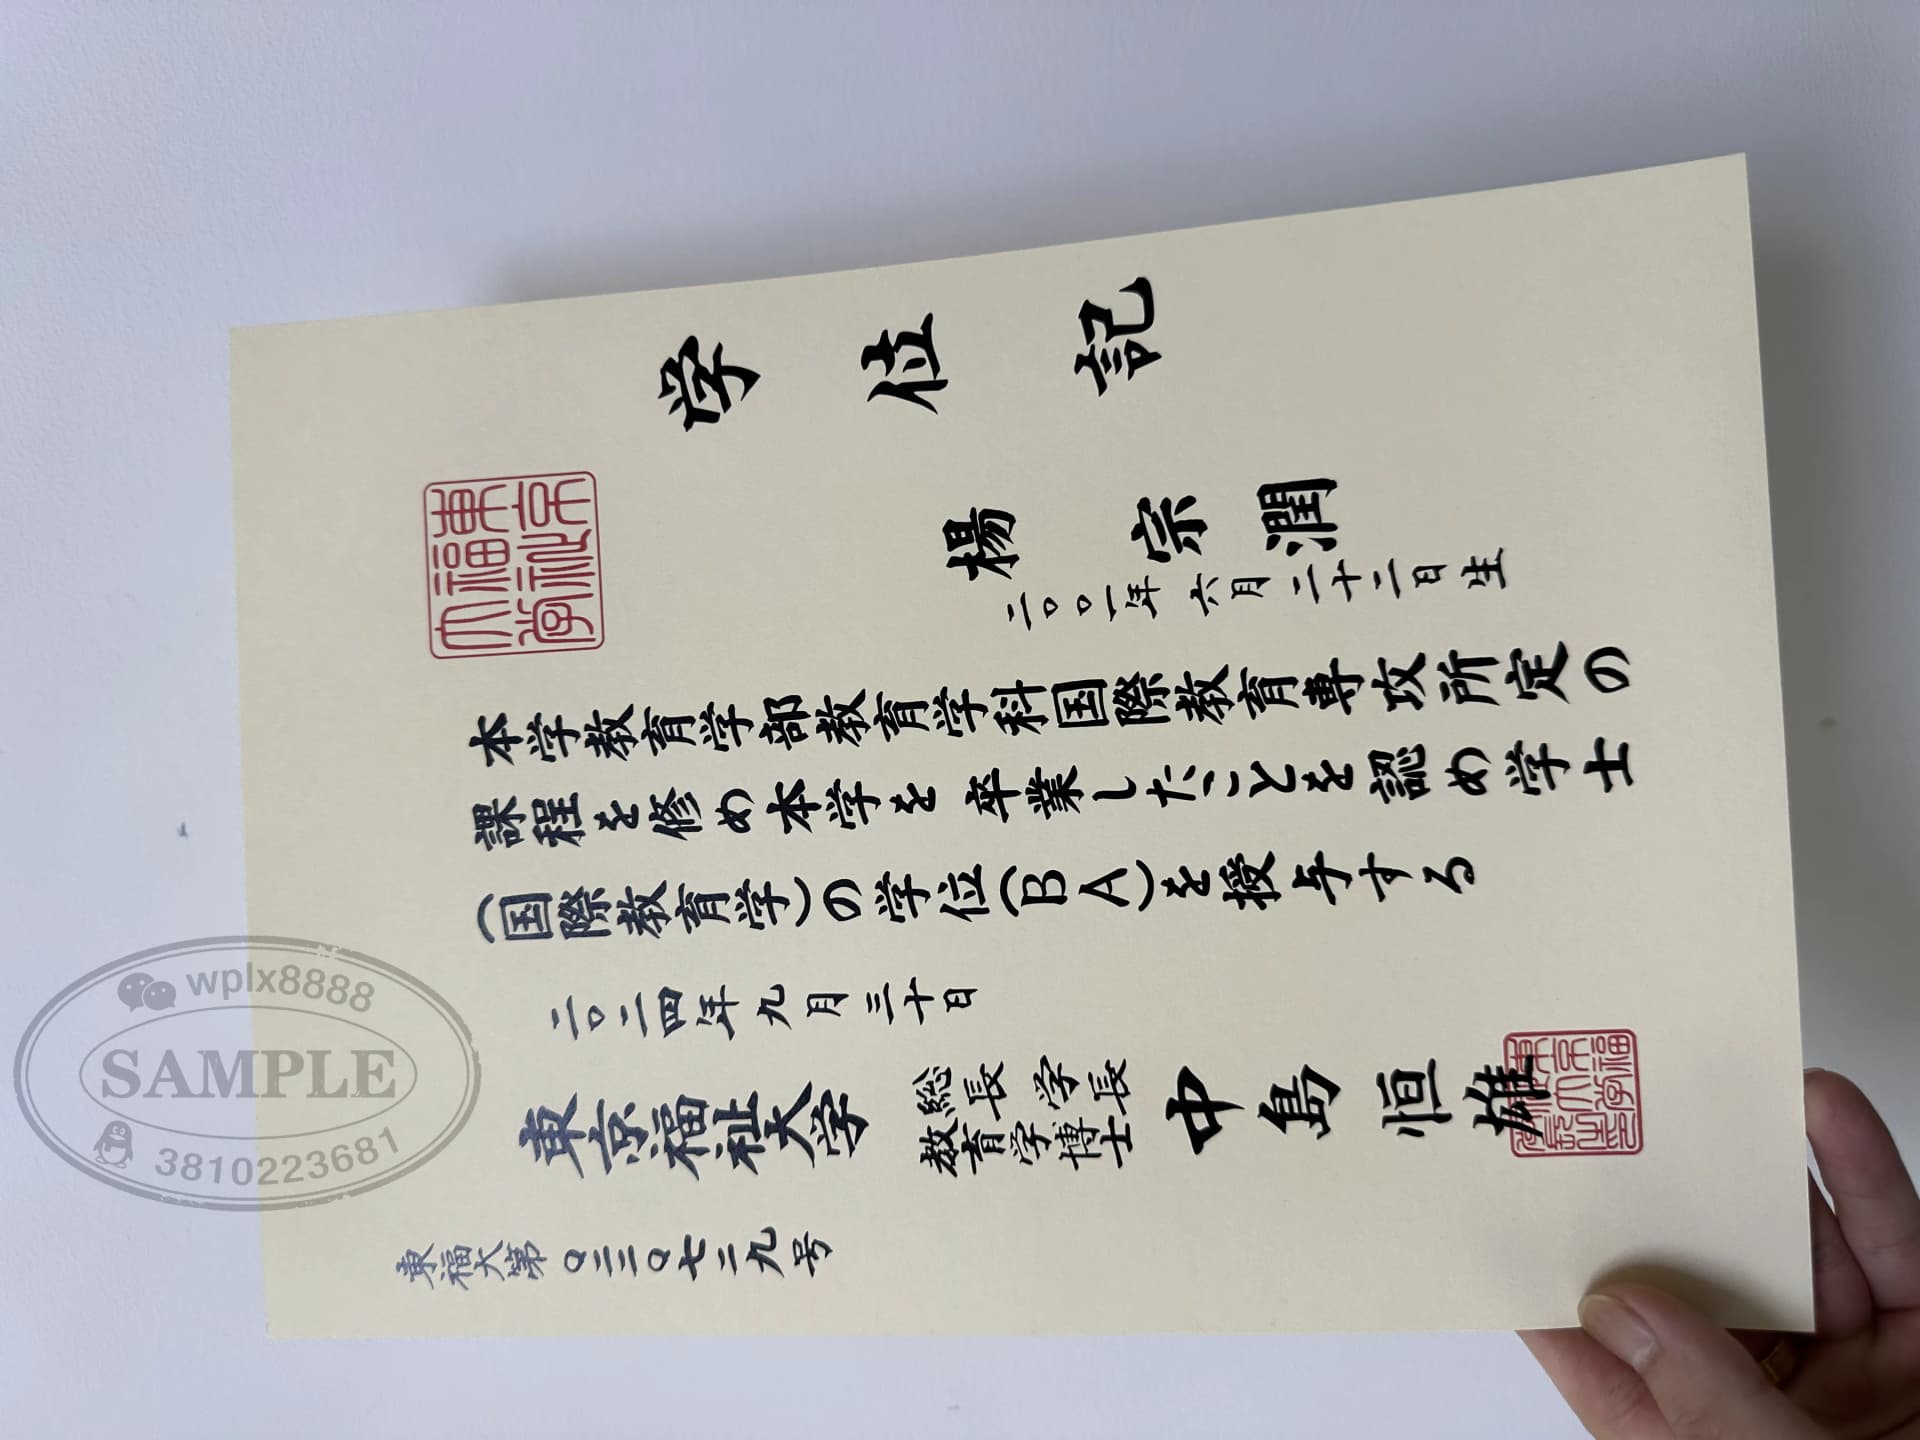 学位記
楊 宗潤
二〇〇一年六月二十二日生
本学教育学部教育学科国際教育専攻所定の
課程を修め本学を卒業したことを認め学士
(国際教育学)の学位(BA)を授与する
二〇二四年九月三十日
東京福祉大学
総長 学長
教育学博士
中島恒雄
東福大第〇二三〇七二九号
東京福祉大学
wplx8888
SAMPLE
3810223681